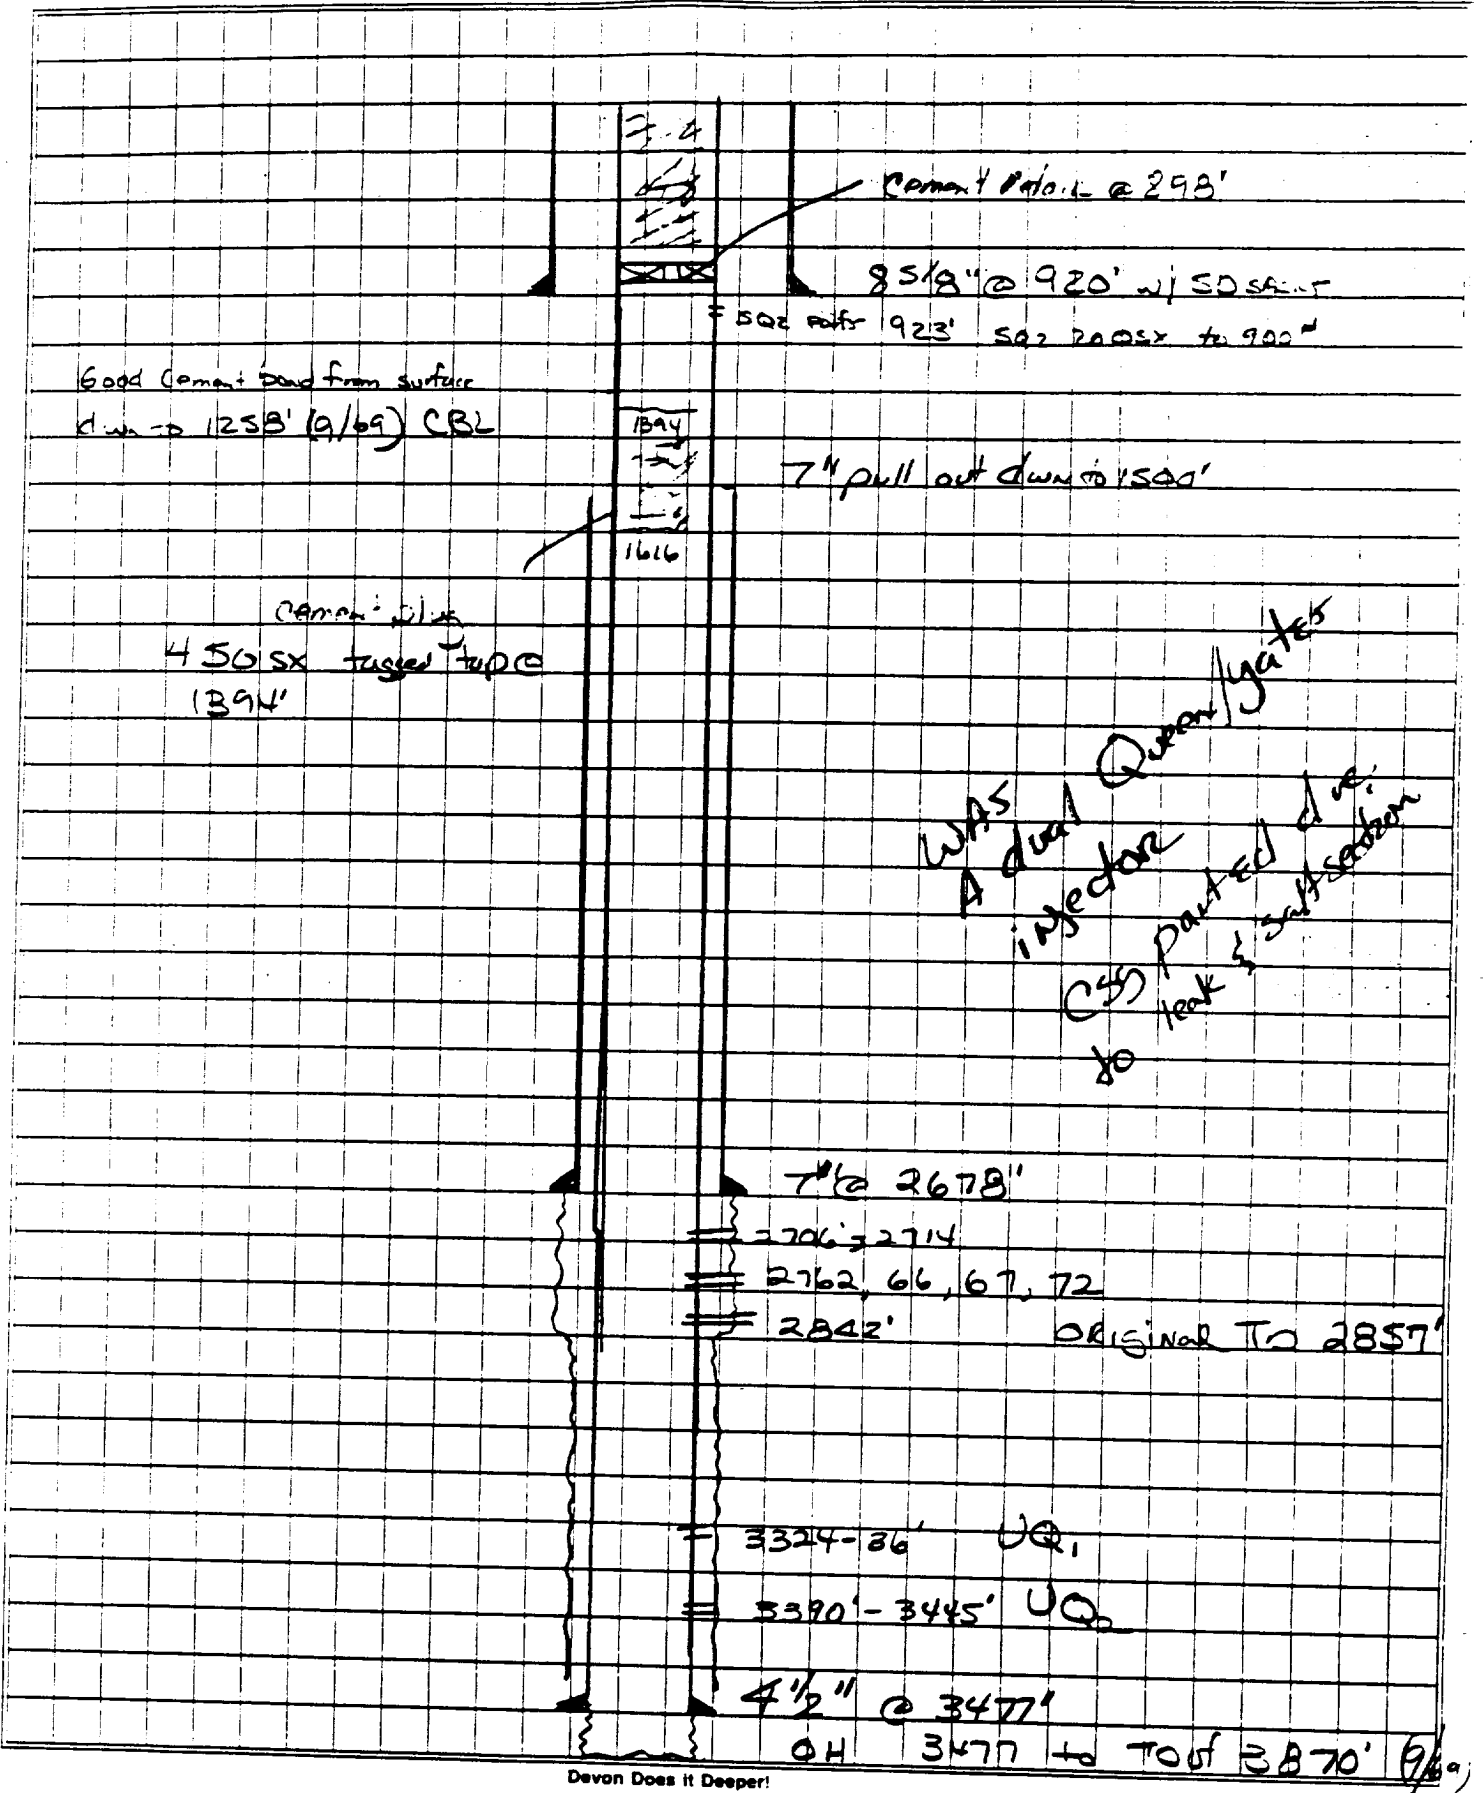 Cement @ 298'
8 5/8" @ 920' w/ 50
= SQZ 923' SQZ 200sx to 900"
Good Cement bond from surface
down to 1258' (9/69) CBL
1394
7" pull out down to 1500'
1616
Cement plug
450 sx tagged top @
1394'
WAS
A dual Queen/yates
injector
CSG parted due
to leak & salt section
7" @ 2678"
2706'-2714
2762, 66, 67, 72
2842'
ORiginal TD 2857'
3324-36' UQ1
3390'-3445' UQ2
4 1/2" @ 3477'
OH 3477 to TD of 3870' (9/69)
Devon Does it Deeper!